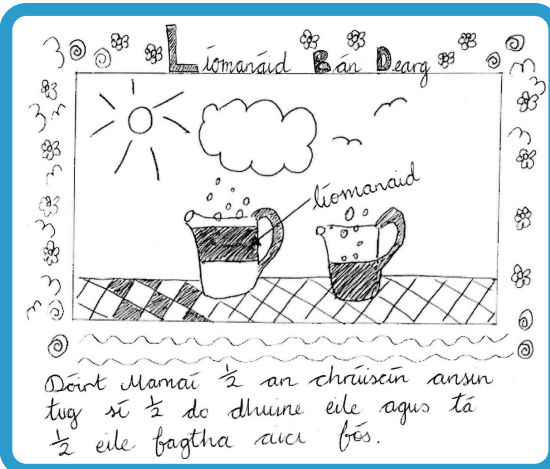 Líomanáid Bán Dearg
líomanáid
Dóirt Mamaí ½ an chrúiscín ansin
tug sí ½ do dhuine eile agus tá
½ eile fagtha aici fós.